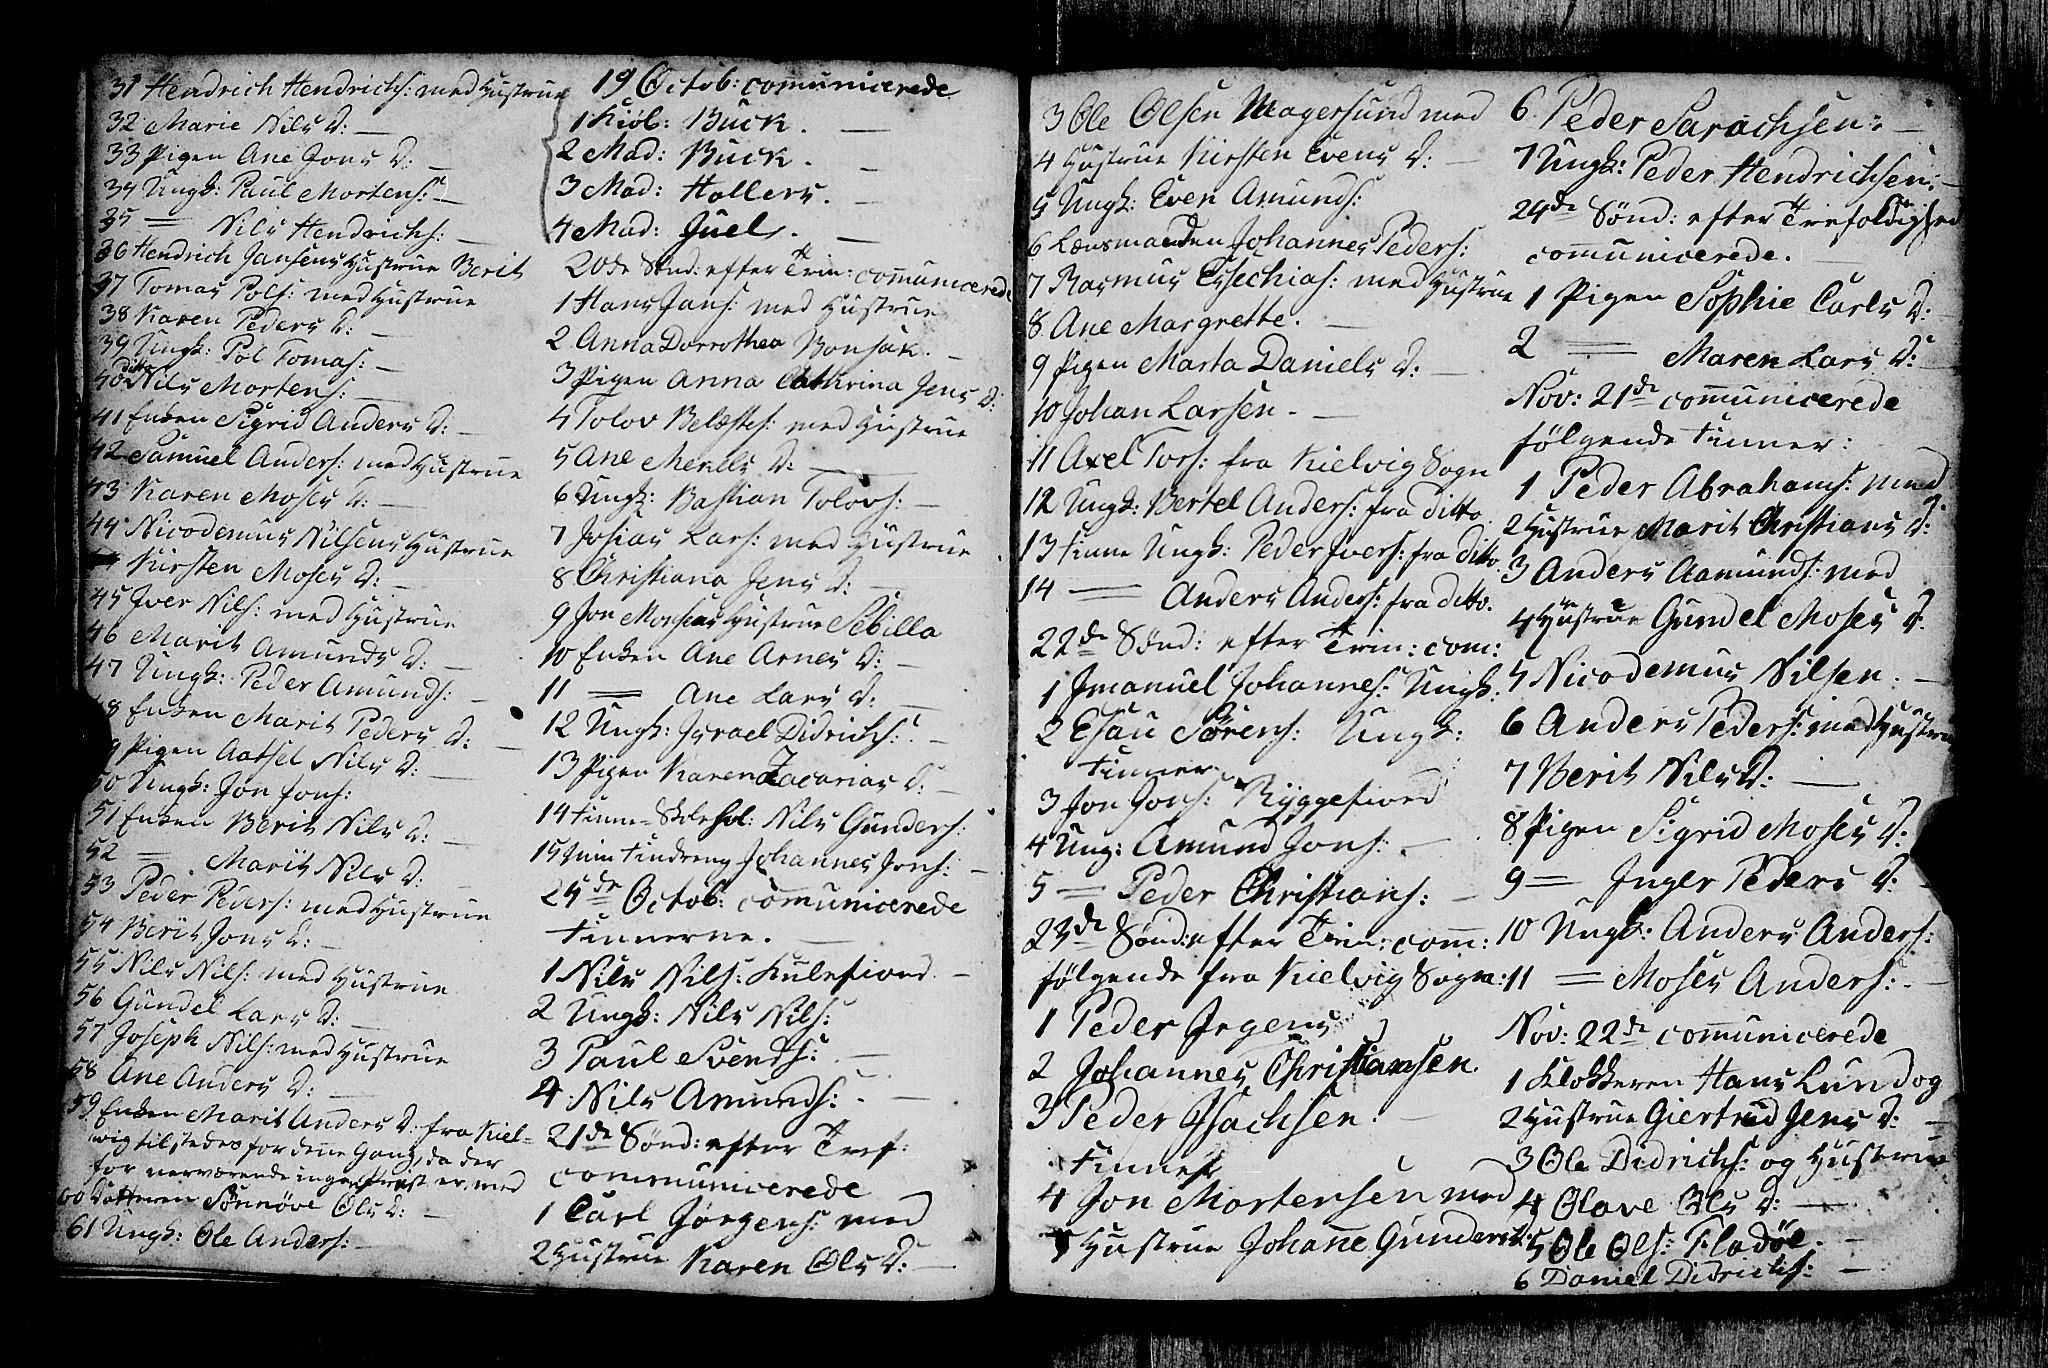 31 Hendrich Hendrichs: med Hustrue
32 Marie Nils D: —
33 Pigen Ane Jons D: —
34 Ungk: Paul Mortens: —
35 — Nils Hendrichs: —
36 Hendrich Jansens Hustrue Berit
37 Tomas Pols: med Hustrue
38 Karen Peders D: —
39 Ungk: Pol Tomas: —
40 ditto Nils Mortens: —
41 Enken Sigrid Anders D: —
42 Samuel Anders: med Hustrue
43 Karen Moses D: —
44 Nicodemus Nilsens Hustrue
Kirsten Moses D: —
45 Iver Nils: med Hustrue
46 Marit Amunds D: —
47 Ungk: Peder Amunds: —
48 Enken Marit Peders D: —
49 Pigen Aathel Nils D: —
50 Ungk: Jon Jons:
51 Enken Berit Nils D: —
52 — Marit Nils D: —
53 Peder Peders: med Hustrue
54 Berit Jons D: —
55 Nils Nils: med Hustrue
56 Gundel Lars D: —
57 Joseph Nils: med Hustrue
58 Ane Anders D: —
59 Enken Marit Anders D: fra Kiel-
vig tilstedes for denne Gang, da der
for nerværende ingen Præst er, med
60 Datteren Sønnøve Ols D: —
61 Ungk: Ole Anders: —
19 Octob: comunicerede
1 Kiøb: Buck. —
2 Mad: Buck. —
3 Mad: Hollers. —
4 Mad: Juels. —
20de Sønd: efter Trin: comunicerede
1 Hans Jans: med Hustrue
2 Anna Dorrothea Bonsak. —
3 Pigen Anna Cathrina Jens D:
4 Tolov Belæstes: med Hustrue
5 Ane Mentls D: —
6 Ungk: Bastian Tolovs: —
7 Josias Lars: med Hustrue
8 Christiana Jens D: —
9 Jon Monsens Hustrue Sebilla
10 Enken Ane Arnes D: —
11 — Ane Lars D: —
12 Ungk: Israel Didrichs: —
13 Pigen Karen Zacarias D: —
14 Finne-Skolehol: Nils Gunders:
15 Finnedreng Johannes Jons: —
24de Octob: comunicerede
Finnerne. —
1 Nils Nils: Kulefiord —
2 Ungk: Nils Nils:
3 Paul Svends: —
4 Nils Amunds: —
21de Sønd: efter Tref:
communicerede
1 Carl Jørgens: med
2 Hustrue Karen Ols D: —
3 Ole Olsen Magersund med
4 Hustrue Kirsten Evens D: —
5 Ungk: Even Amunds:
6 Lænsmanden Johannes Peders:
7 Rasmus Essechias: med Hustrue
8 Ane Margrette. —
9 Pigen Marta Daniels D: —
10 Johan Larsen. —
11 Axel Tors: fra Kielvig Sogn
12 Ungk: Bertel Anders: fra Ditto.
13 Finne Ungk: Peder Ivers: fra Ditto.
14 — Anders Anders: fra Ditto.
22de Sønd: efter Trin: com:
1 Imanuel Johannes: Ungk:
2 Esau Sørens: Ungk:
Finner
3 Jon Jons: Ryggefiord
4 Ung: Amund Jons: —
5 — Peder Christians: —
23de Sønd: efter Trin: com:
følgende fra Kielvig Sogn:
1 Peder Jrgens
2 Johannes Christiansen.
3 Peder Isachsen. —
Finner
4 Jon Mortensen med
5 Hustrue Johane Gunders D:
6 Peder Sarachsen: —
7 Ungk: Peder Hendrichsen: —
24de Sønd: efter Trefoldighed
communicerede. —
1 Pigen Sophie Carls D: —
2 — Maren Lars D: —
Nov: 21de communicerede
følgende Finner:
1 Peder Abrahams: med
2 Hustrue Marit Christians D:
3 Anders Aamunds: med
4 Hustrue Gundel Moses D:
5 Nicodemus Nilsen. —
6 Anders Peders: med Hustrue
7 Berit Nils D: —
8 Pigen Sigrid Moses D:
9 — Inger Peders D: —
10 Ungk: Anders Anders:
11 — Moses Anders: —
Nov: 22de comunicerede
1 Klokkeren Hans Lund og
2 Hustrue Giertrud Jens D: —
3 Ole Didrichs: og Hustrue
4 Olave Ols D: —
5 Ole Ols: Fladøe. —
6 Daniel Didrichs: —